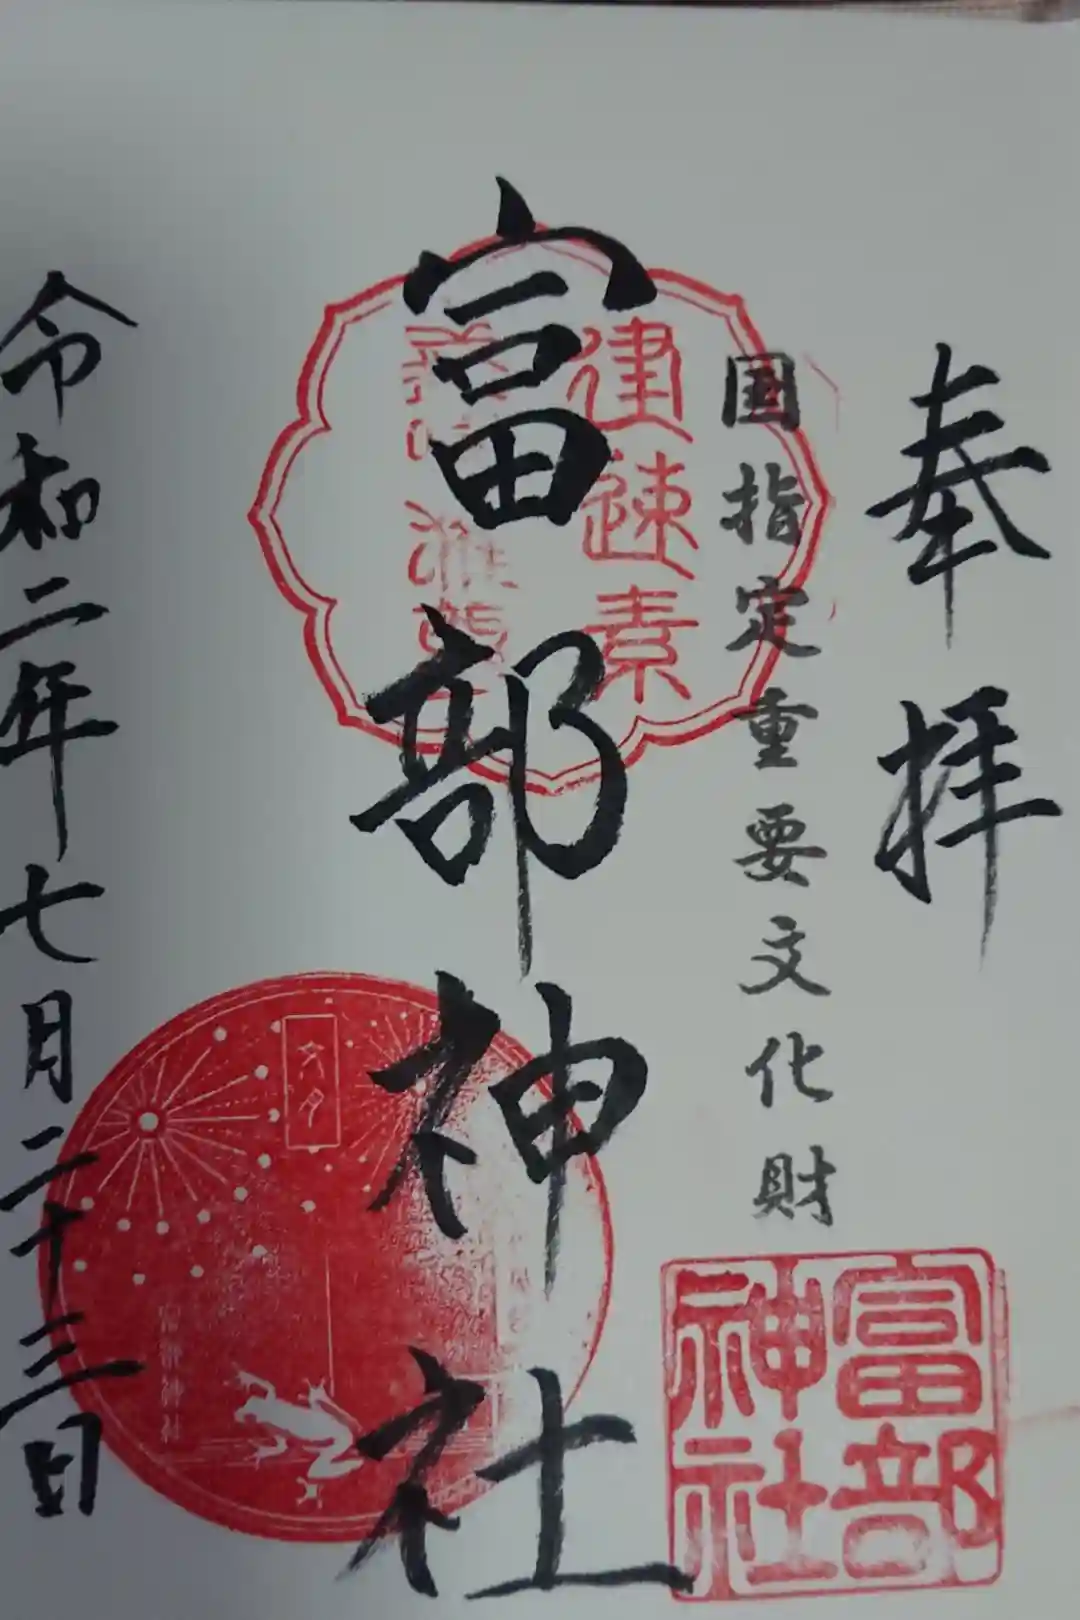 奉拝
国指定重要文化財
富部神社
建速素
富部
神社
文月
令和二年七月二十三日